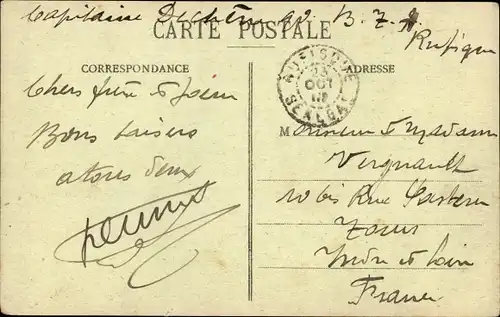 Capitaine
CARTE POSTALE
Rufisque
CORRESPONDANCE
ADRESSE
RUFISQUE
OCT
SENEGAL
Chers frère et
Bons baisers
a tous deux
Monsieur et Madame
Vergnault
10 bis Rue Pasteur
Tours
Indre et Loire
France